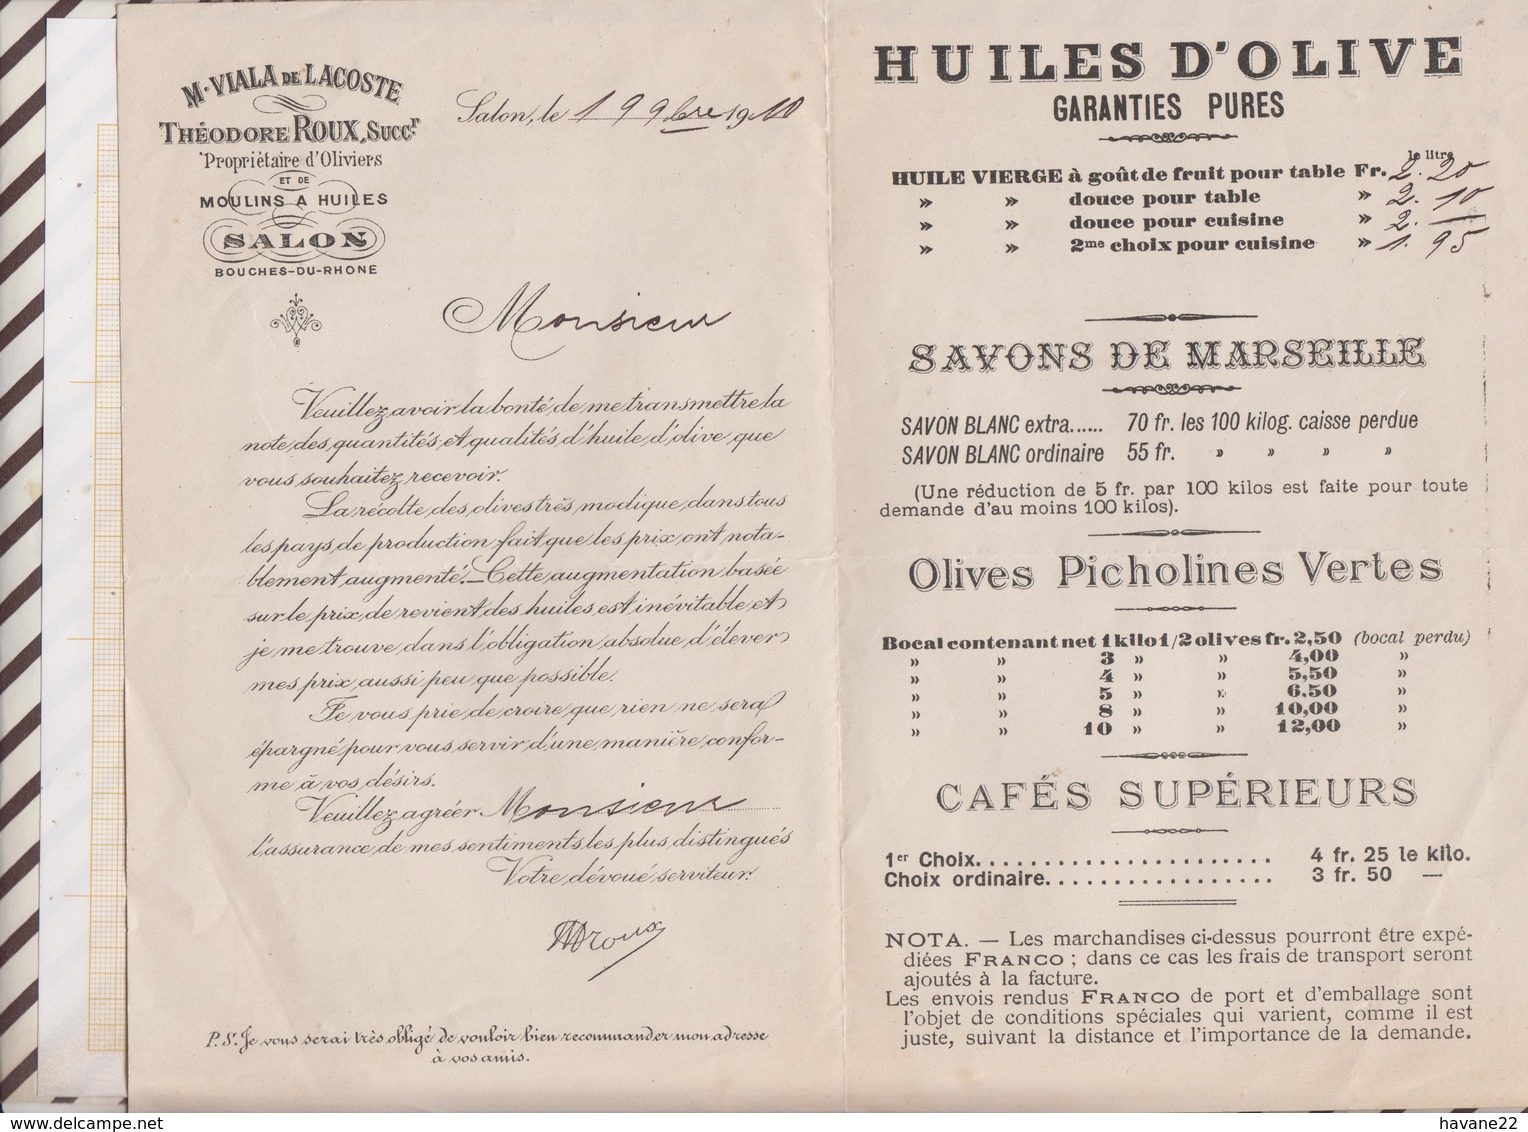 M. VIALA DE LACOSTE
THÉODORE ROUX, SUCC.r
Propriétaire d'Oliviers
ET DE
MOULINS A HUILES
SALON
BOUCHES-DU-RHONE
Salon, le 19 9bre 1910
Monsieur
Veuillez avoir la bonté de me transmettre la
note des quantités et qualités d'huile d'olive que
vous souhaitez recevoir.
La récolte des olives très modique dans tous
les pays de production fait que les prix ont nota-
blement augmenté. — Cette augmentation basée
sur le prix de revient des huiles est inévitable et
je me trouve dans l'obligation absolue d'élever
mes prix aussi peu que possible.
Je vous prie de croire que rien ne sera
épargné pour vous servir d'une manière confor-
me à vos désirs.
Veuillez agréer Monsieur
l'assurance de mes sentiments les plus distingués
Votre dévoué serviteur.
ThRoux
P.S. Je vous serai très obligé de vouloir bien recommander mon adresse
à vos amis.
HUILES D'OLIVE
GARANTIES PURES
le litre
HUILE VIERGE à goût de fruit pour table Fr. 2.20
» » douce pour table » 2.10
» » douce pour cuisine » 2.—
» » 2me choix pour cuisine » 1.95
SAVONS DE MARSEILLE
SAVON BLANC extra...... 70 fr. les 100 kilog. caisse perdue
SAVON BLANC ordinaire 55 fr. » » » »
(Une réduction de 5 fr. par 100 kilos est faite pour toute
demande d'au moins 100 kilos).
Olives Picholines Vertes
Bocal contenant net 1 kilo 1/2 olives fr. 2,50 (bocal perdu)
» » 3 » » 4,00 »
» » 4 » » 5,50 »
» » 5 » » 6.50 »
» » 8 » » 10,00 »
» » 10 » » 12,00 »
CAFÉS SUPÉRIEURS
1er Choix...................... 4 fr. 25 le kilo.
Choix ordinaire................. 3 fr. 50 —
NOTA. — Les marchandises ci-dessus pourront être expé-
diées FRANCO ; dans ce cas les frais de transport seront
ajoutés à la facture.
Les envois rendus FRANCO de port et d'emballage sont
l'objet de conditions spéciales qui varient, comme il est
juste, suivant la distance et l'importance de la demande.
havane22